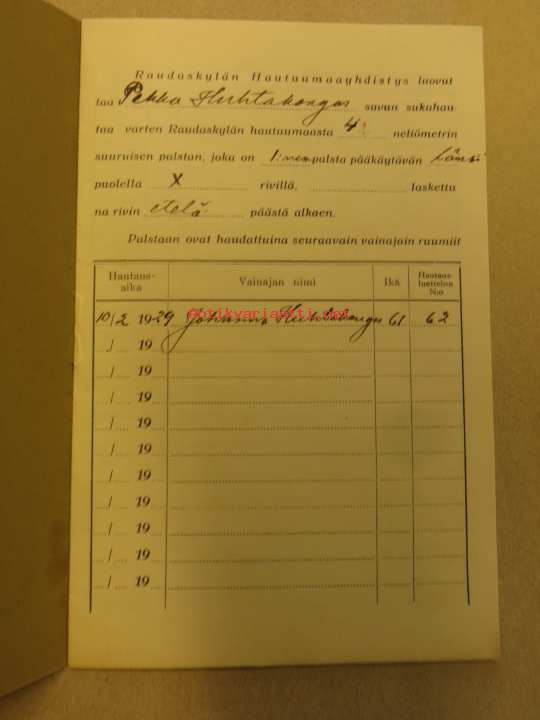 Raudaskylän Hautuumaayhdistys luovut
taa Pekka Huhtakangas suvun sukuhau-
taa varten Raudaskylän hautuumaasta 4: neliömetrin
suuruisen palstan, joka on 1:nen palsta pääkäytävän Länsi
puolella X rivillä, laskettu
na rivin etelä päästä alkaen.
Palstaan ovat haudattuina seuraavain vainajain ruumiit
Hautaus-aika Vainajan nimi Ikä Hautaus-luettelon N:o
10/2 1929 Johanna Huhtakangas 61 62
antikvariaatti.net
/ 19
/ 19
/ 19
/ 19
/ 19
/ 19
/ 19
/ 19
/ 19
/ 19